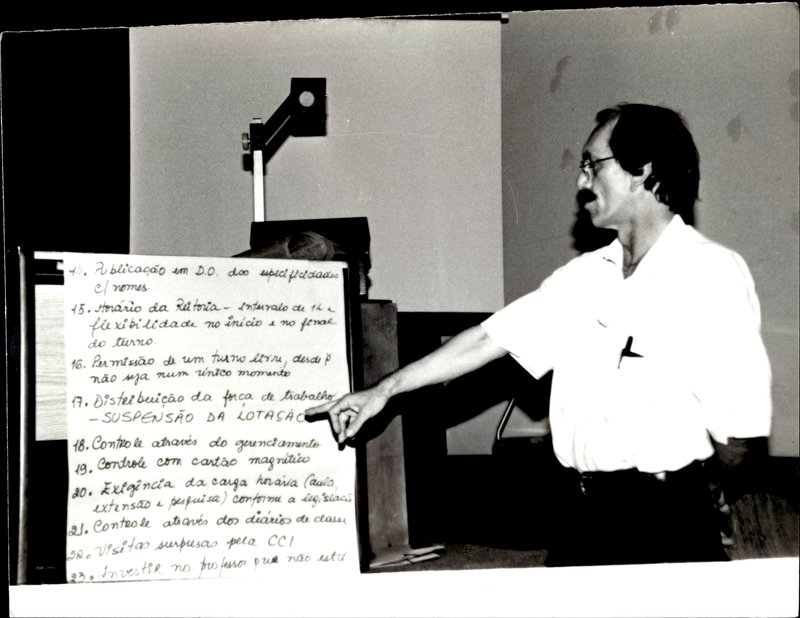 14. Publicação em D.O. das especificidades
c/ nomes
15. Horário da Reitoria - intervalo de 1h e
flexibilidade no início e no final
do turno.
16. Permissão de um turno livre, desde q
não seja num único momento
17. Distribuição da força de trabalho
- SUSPENSÃO DA LOTAÇÃO
18. Controle através do gerenciamento
19. Controle com cartão magnético
20. Exigência da carga horária (aula,
extensão e pesquisa) conforme a legislação
21. Controle através dos diários de classe
22. Visitas surpresas pela CCI
23. Investir no professor que não está